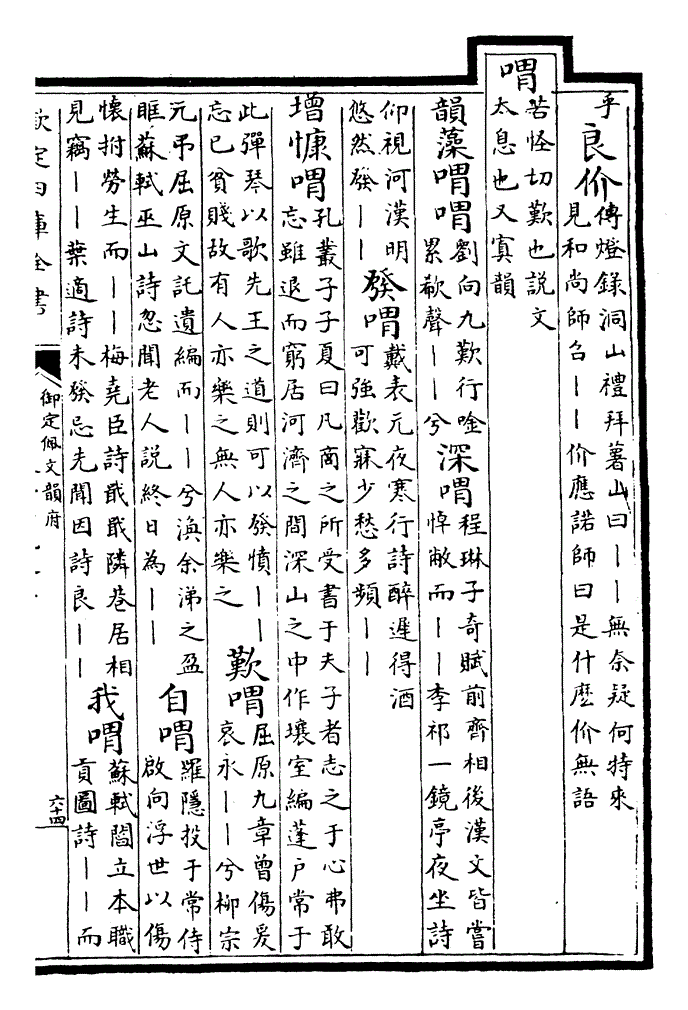 乎
良价
傳燈錄洞山禮拜薯山曰丨丨無奈疑何特來
見和尚師召丨丨价應諾師曰是什麽价無語
喟
苦怪切歎也說文
太息也又寘韻
韻藻喟喟
劉向九歎行唫
累欷聲丨丨兮
深喟
程琳子奇賦前齊相後漢文皆嘗
悼敝而丨丨李祁一鏡亭夜坐詩
仰視河漢明
悠然發丨丨
發喟
戴表元夜寒行詩醉遲得酒
可強歡寐少愁多頻丨丨
增慷喟
孔叢子子夏曰凡商之所受書于夫子者志之于心弗敢
忘雖退而窮居河濟之間深山之中作壤室編蓬戶常于
此彈琴以歌先王之道則可以發憤丨丨
忘已貧賤故有人亦樂之無人亦樂之
歎喟
屈原九章曾傷爰
哀永丨丨兮柳宗
元弔屈原文託遺編而丨丨兮渙余涕之盈
眶蘇軾巫山詩忽聞老人說終日為丨丨
自喟
羅隱投于常侍
啟向浮世以傷
懷拊勞生而丨丨梅堯臣詩戢戢隣巷居相
見竊丨丨葉適詩未發忌先聞因詩良丨丨
我喟
蘇軾閻立本職
貢圖詩丨丨而
欽定四庫全書
御定佩文韻府
六十四